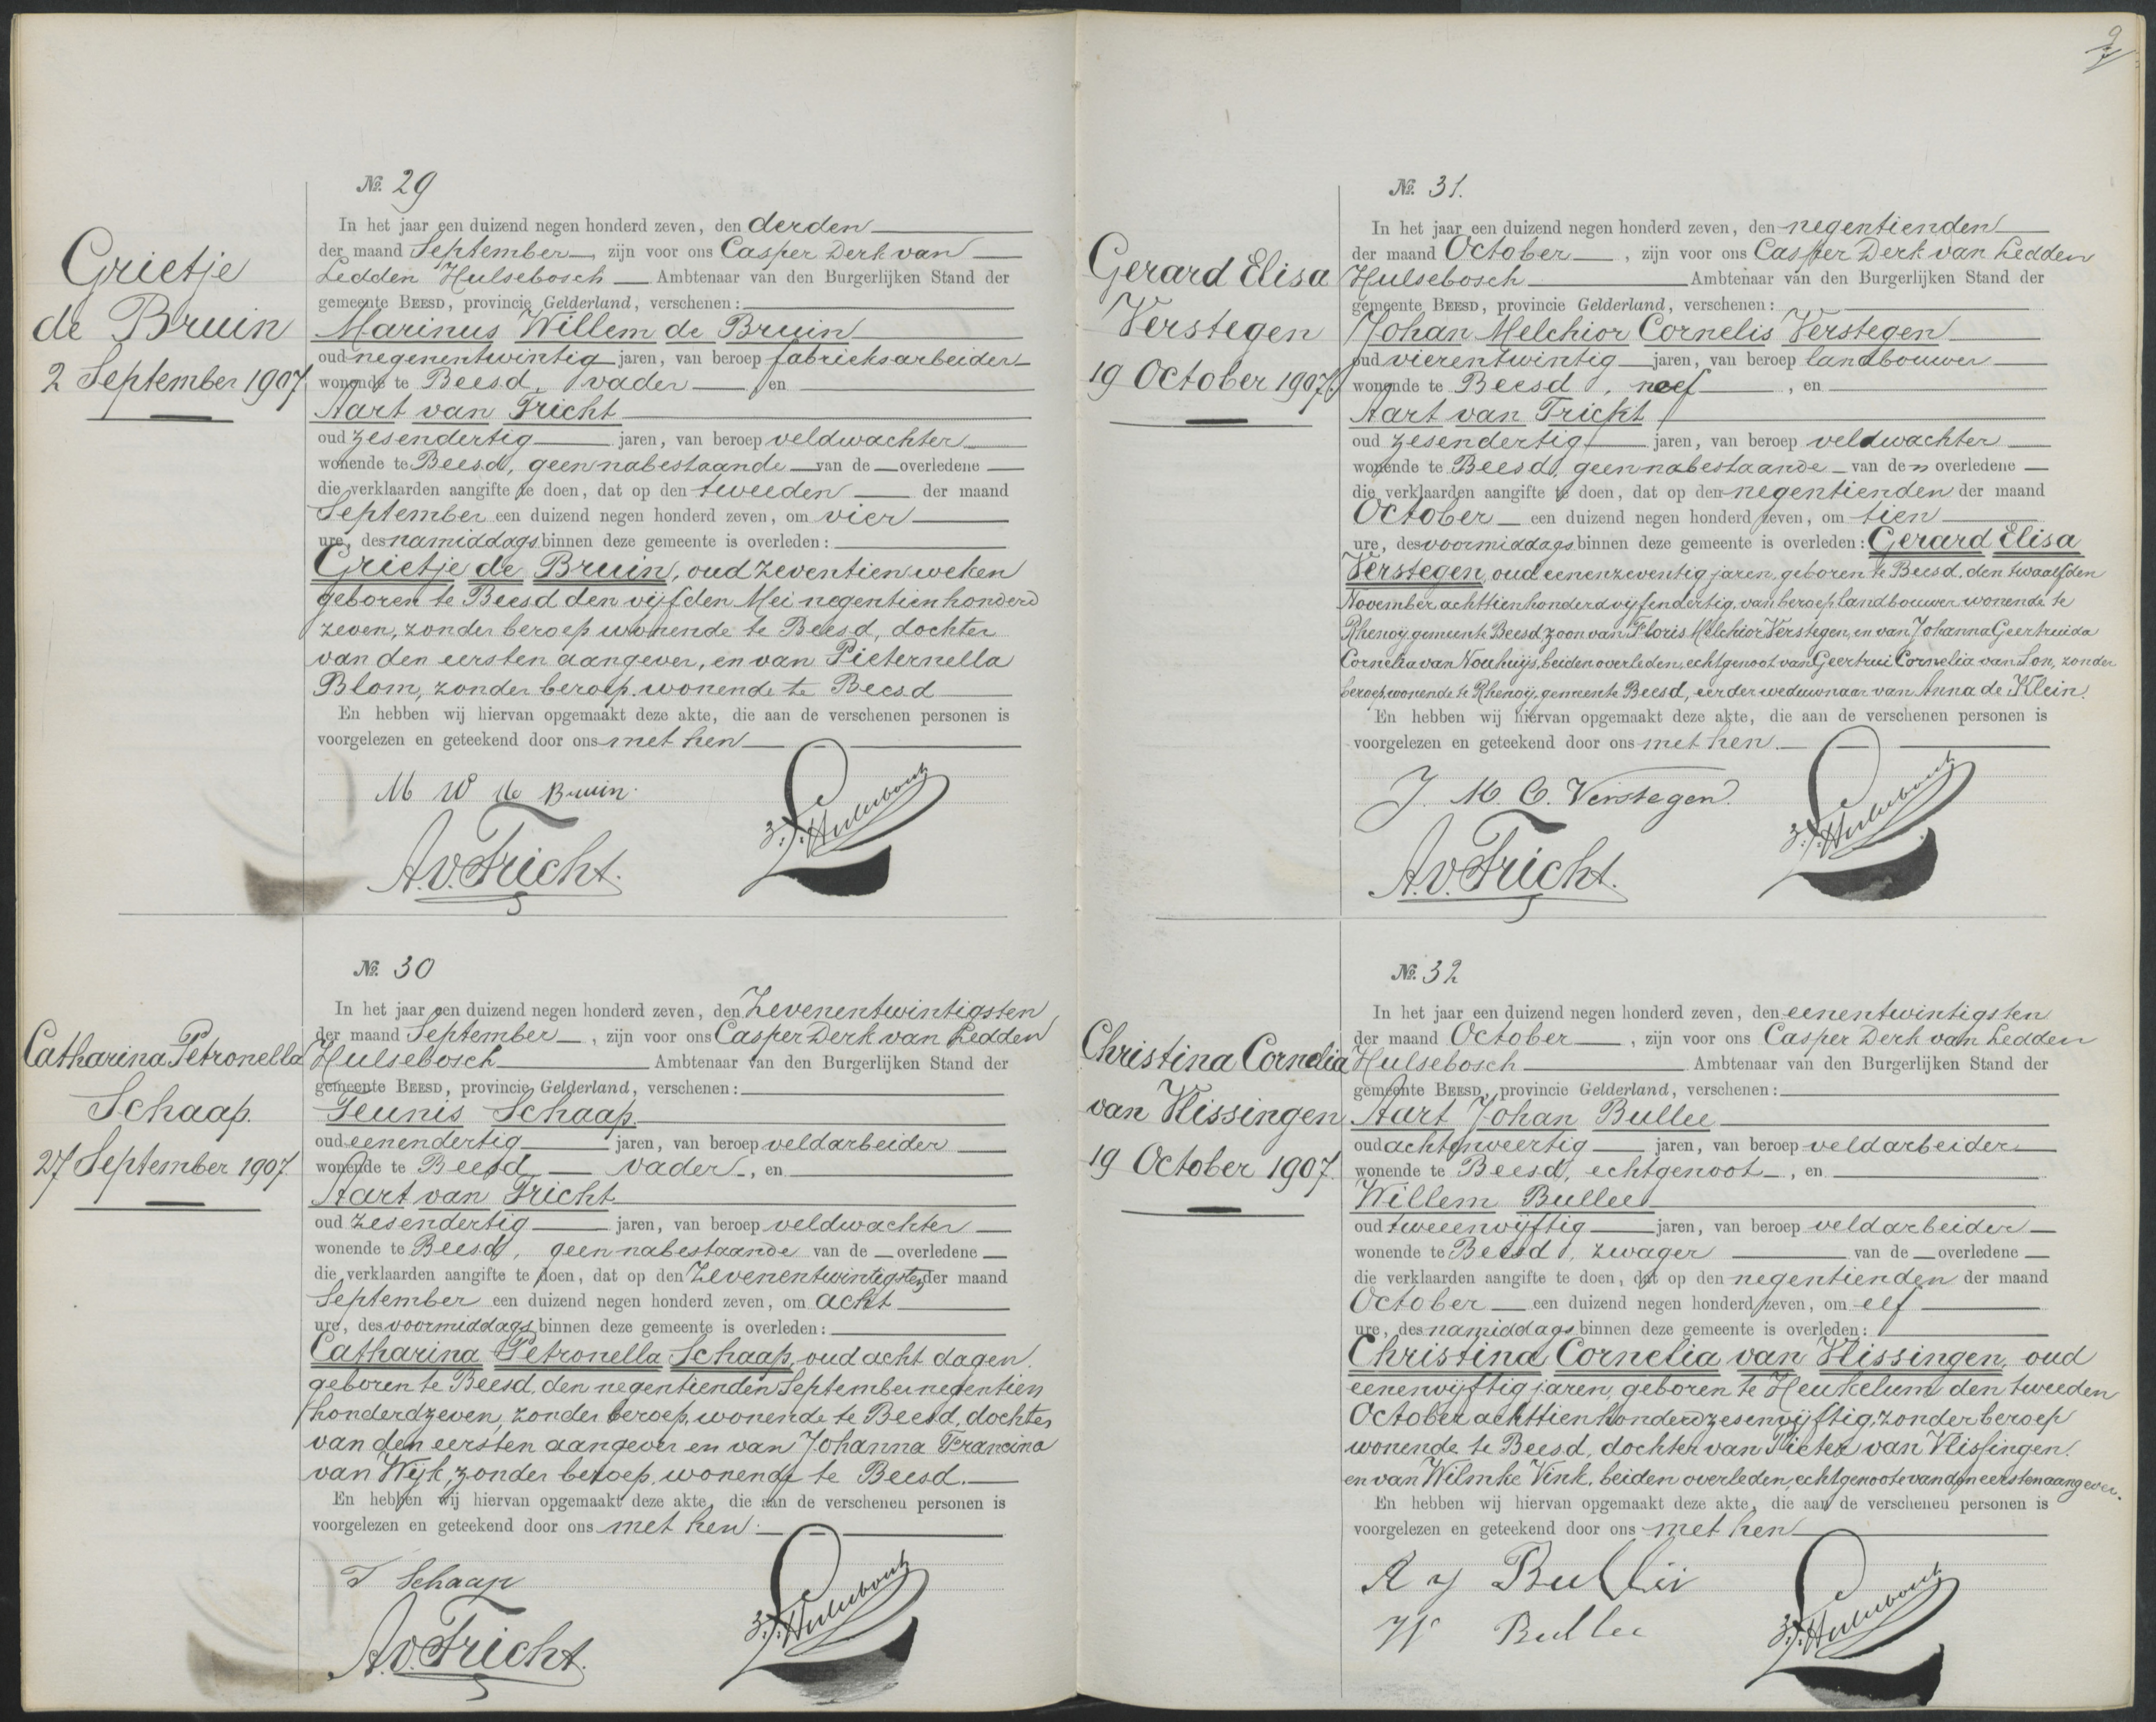 №. 29
Grietje
de Bruin
2 September 1907
In het jaar een duizend negen honderd zeven, den derden
der maand September, zijn voor ons Casper Derk van
Ledden Hulsebosch Ambtenaar van den Burgerlijken Stand der
gemeente BEESD, provincie Gelderland, verschenen:
Marinus Willem de Bruin
oud negenentwintig jaren, van beroep fabrieksarbeider
wonende te Beesd, vader, en
Aart van Tricht
oud zesendertig jaren, van beroep veldwachter
wonende te Beesd, geen nabestaande van de overledene
die verklaarden aangifte te doen, dat op den tweeden der maand
September een duizend negen honderd zeven, om vier
ure, des namiddags binnen deze gemeente is overleden:
Grietje de Bruin, oud zeventien weken
geboren te Beesd den vijfden Mei negentienhonderd
zeven, zonder beroep wonende te Beesd, dochter
van den eersten aangever, en van Pieternella
Blom, zonder beroep, wonende te Beesd
En hebben wij hiervan opgemaakt deze akte, die aan de verschenen personen is
voorgelezen en geteekend door ons met hen
M W de Bruin.
A.v.Tricht.
Hulsebosch
№. 30
Catharina Petronella
Schaap.
27 September 1907.
In het jaar een duizend negen honderd zeven, den Zevenentwintigsten
der maand September, zijn voor ons Casper Derk van Ledden
Hulsebosch Ambtenaar van den Burgerlijken Stand der
gemeente BEESD, provincie Gelderland, verschenen:
Teunis Schaap.
oud eenendertig jaren, van beroep veldarbeider
wonende te Beesd, vader, en
Aart van Tricht
oud zesendertig jaren, van beroep veldwachter
wonende te Beesd, geen nabestaande van de overledene
die verklaarden aangifte te doen, dat op den Zevenentwintigsten der maand
September een duizend negen honderd zeven, om acht
ure, des voormiddags binnen deze gemeente is overleden:
Catharina Petronella Schaap, oud acht dagen.
geboren te Beesd, den negentienden September negentien
honderdzeven, zonder beroep, wonende te Beesd, dochter
van den eersten aangever en van Johanna Francina
van Wijk, zonder beroep, wonende te Beesd.
En hebben wij hiervan opgemaakt deze akte, die aan de verschenen personen is
voorgelezen en geteekend door ons met hen.
T Schaap
A.v.Tricht.
Hulsebosch
9
№. 31.
Gerard Elisa
Verstegen
19 October 1907.
In het jaar een duizend negen honderd zeven, den negentienden
der maand October, zijn voor ons Casper Derk van Ledden
Hulsebosch Ambtenaar van den Burgerlijken Stand der
gemeente BEESD, provincie Gelderland, verschenen:
Johan Melchior Cornelis Verstegen
oud vierentwintig jaren, van beroep landbouwer
wonende te Beesd, neef, en
Aart van Tricht
oud zesendertig jaren, van beroep veldwachter
wonende te Beesd, geen nabestaande van den overledene
die verklaarden aangifte te doen, dat op den negentienden der maand
October een duizend negen honderd zeven, om tien
ure, des voormiddags binnen deze gemeente is overleden: Gerard Elisa
Verstegen, oud eenenzeventig jaren, geboren te Beesd, den twaalfden
November achttienhonderdvijfendertig, van beroep landbouwer wonende te
Rhenoij gemeente Beesd, zoon van Floris Melchior Verstegen, en van Johanna Geertruida
Cornelia van Nouhuijs, beiden overleden, echtgenoot van Geertrui Cornelia van Son, zonder
beroep, wonende te Rhenoij, gemeente Beesd, eerder weduwnaar van Anna de Klein.
En hebben wij hiervan opgemaakt deze akte, die aan de verschenen personen is
voorgelezen en geteekend door ons met hen.
J. M. C. Verstegen.
A.v.Tricht.
Hulsebosch
№. 32
Christina Cornelia
van Vlissingen
19 October 1907.
In het jaar een duizend negen honderd zeven, den eenentwintigsten
der maand October, zijn voor ons Casper Derk van Ledden
Hulsebosch Ambtenaar van den Burgerlijken Stand der
gemeente BEESD, provincie Gelderland, verschenen:
Aart Johan Bullee
oud achtenveertig jaren, van beroep veldarbeider
wonende te Beesd, echtgenoot, en
Willem Bullee
oud tweeenvijftig jaren, van beroep veldarbeider
wonende te Beesd, zwager van de overledene
die verklaarden aangifte te doen, dat op den negentienden der maand
October een duizend negen honderd zeven, om elf
ure, des namiddags binnen deze gemeente is overleden:
Christina Cornelia van Vlissingen, oud
eenenvijftig jaren, geboren te Heukelum den tweeden
October achttienhonderdzesenvijftig, zonder beroep
wonende te Beesd, dochter van Pieter van Vlissingen.
en van Wilmke Vink, beiden overleden, echtgenoote van den eersten aangever.
En hebben wij hiervan opgemaakt deze akte, die aan de verschenen personen is
voorgelezen en geteekend door ons met hen
A J Bullee
W Bullee
Hulsebosch